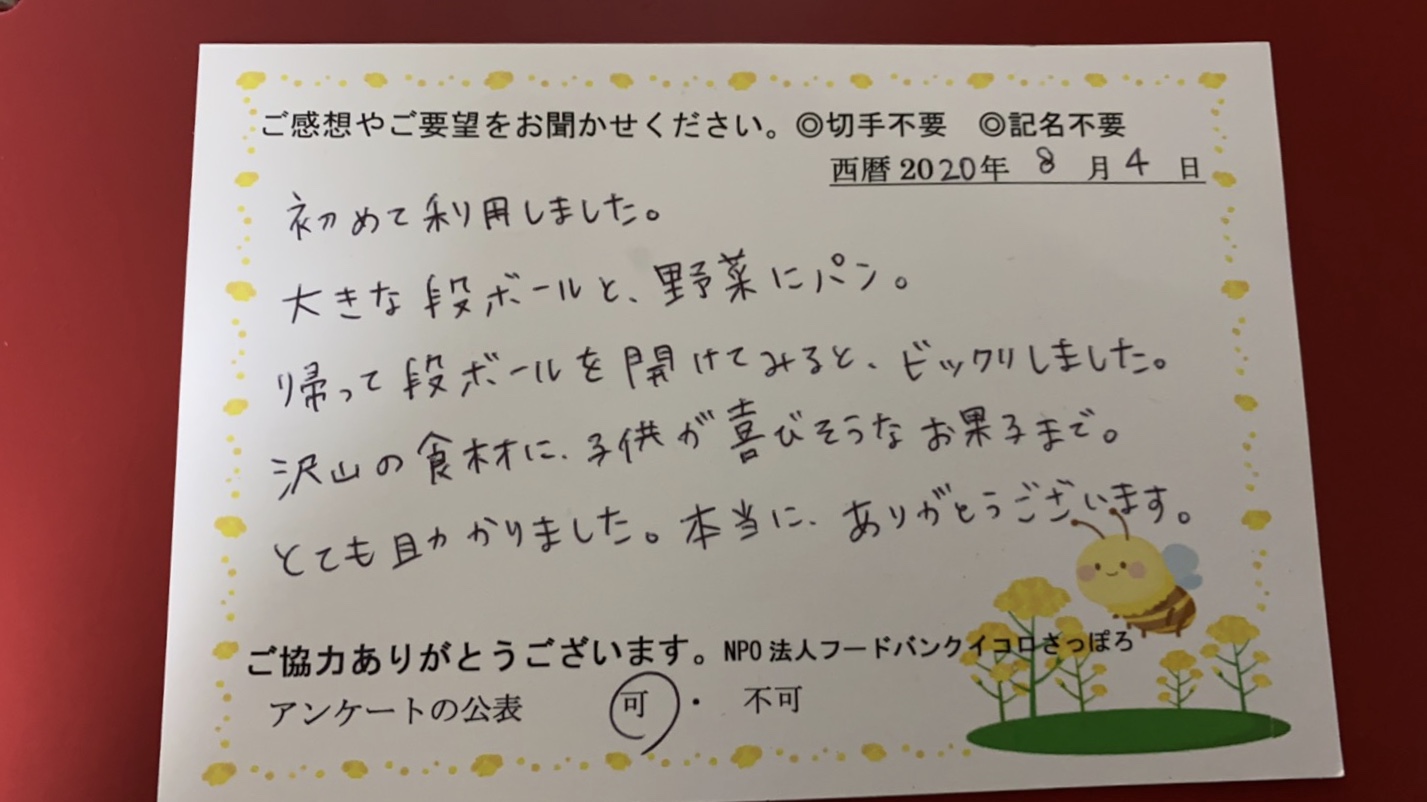 ご感想やご要望をお聞かせください。◎切手不要　◎記名不要
西暦2020年 8月4日
初めて利用しました。
大きな段ボールと、野菜にパン。
帰って段ボールを開けてみると、ビックリしました。
沢山の食材に、子供が喜びそうなお菓子まで。
とても助かりました。本当に、ありがとうございます。
ご協力ありがとうございます。NPO法人フードバンクイコロさっぽろ
アンケートの公表　可・不可